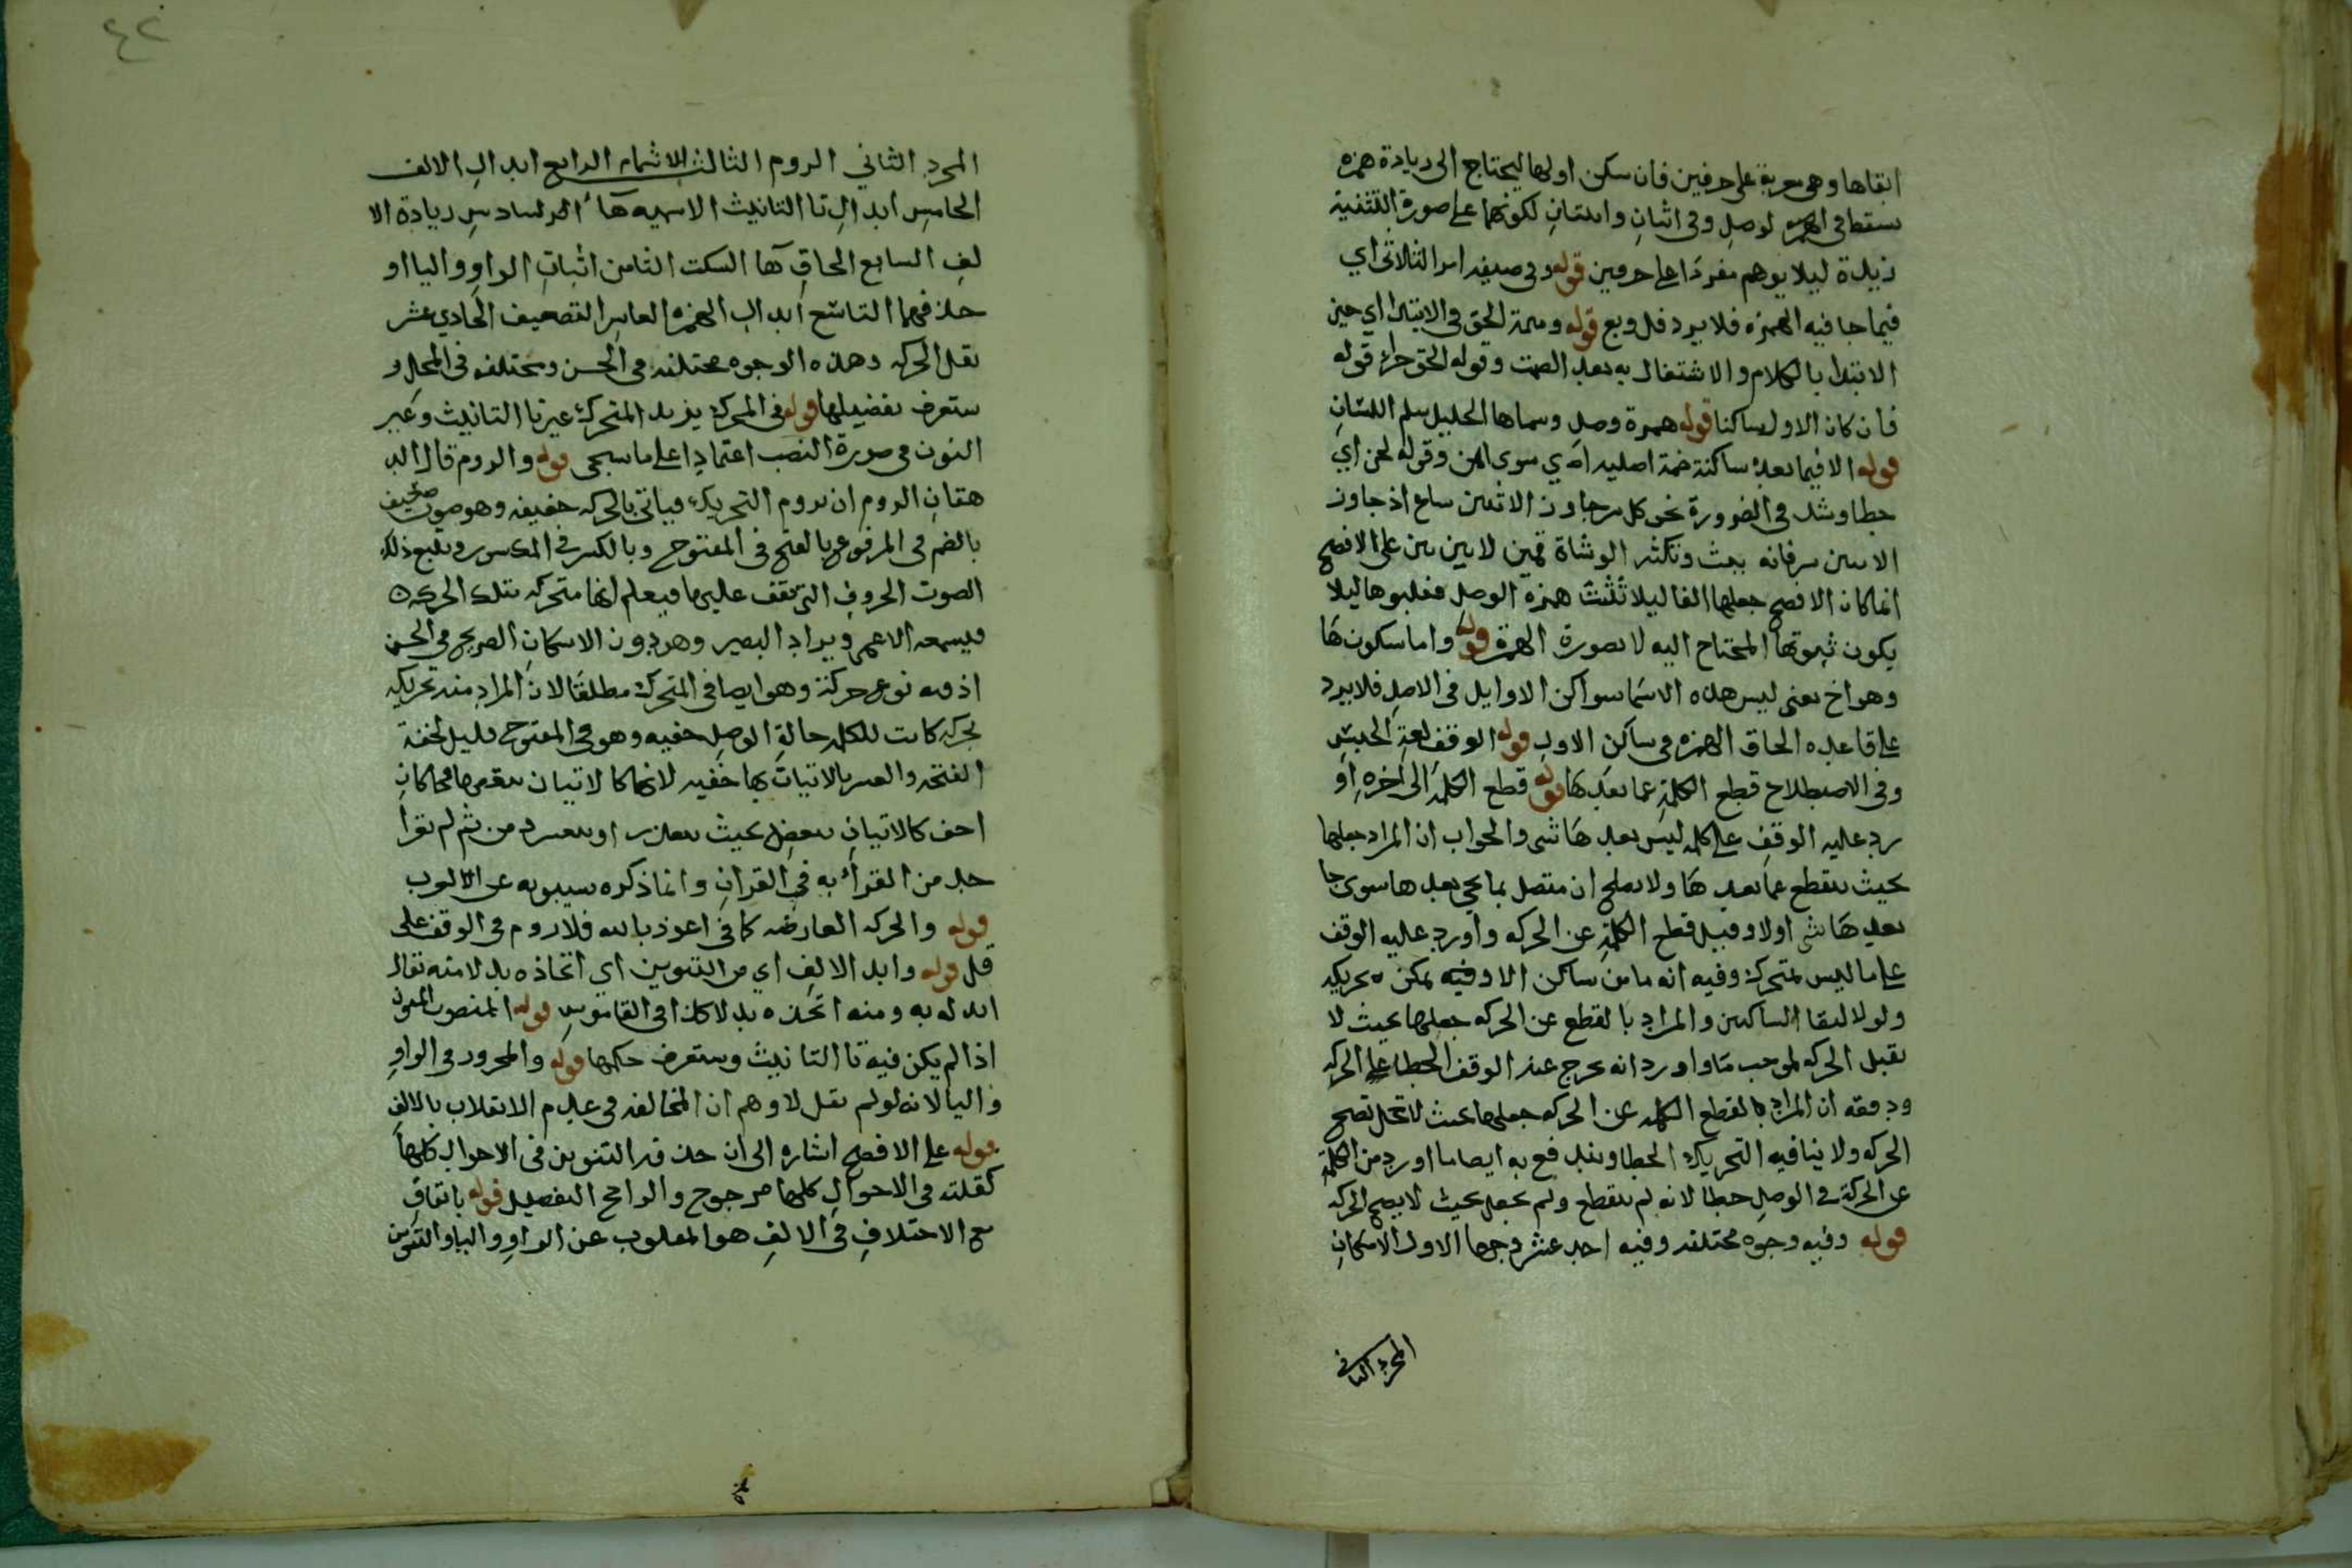 ابقاها وهى معربة على حرفين فان سكن اولها ليحتاج الى زيادة همزه
سقطا فى الوصل وفى اثنان واثنتان لكونهما على صورة التثنية
زيادة ليلا يوهم مفردا على حرفين قوله وفى صيغه امر الثلاثى اى
فيما جا فيه الهمزه فلا يرد فل وبع قوله وسمة الحق فى الابتدا اي حين
الابتدا بالكلام والاشتغال به بعد الصمت وقوله الحق جزاء قوله
فان كان الاول ساكنا قوله همزة وصل وسماها الخليل سلم اللسان
قوله الا فيما بعد ساكنة ضمة اصليه اى سوى ايمن وقوله لحن اي
خطا وشذ فى الضرورة نحو كل سر جاوز الاثنين شاع اذ جاوز
الاثنين سر فانه ببث وتكثير الوشاة قمين لا بين بين على الافصح
انما كان الافصح جعلها الفا ليلا تثبت همزه الوصل فقلبوها ليلا
يكون ثبوتها المحتاج اليه لا بصورة الهمزة قوله واما سكون ها
وهو اخ يعنى ليس هذه الاسما سواكن الاوايل فى الاصل فلا يرد
على قاعده الحاق الهمزه فى ساكن الاول قوله الوقف لغة الحبس
وفى الاصطلاح قطع الكلمة عما بعدها قوله قطع الكلمة الى اخره او
رد عليه الوقف على كلمه ليس بعدها شى والجواب ان المراد جعلها
بحيث ينقطع عما بعدها ولا يصلح ان متصل بما يجى بعدها سوى جا
بعدها شى اولا وقيل قطع الكلمة عن الحركه واورد عليه الوقف
على ما ليس بمتحرك وفيه انه ما من ساكن الا وفيه يمكن ه تحريكه
ولولا التقا الساكنين والمراد بالقطع عن الحركه جعلها بحيث لا
يقبل الحركه لموجب ما واورد انه يخرج عنه الوقف الخطا على الحركه
ودفعه ان المراد بالقطع الكلمه عن الحركه جعلها بحيث لا تحل تصح
الحركه ولا ينافيه التحريك الخطا ويندفع به ايضا ما اورد من الكلمة
عن الحركة فى الوصل خطا لانه لم ينقطع ولم يجعل بحيث لا يصح الحركه
قوله وفيه وجوه مختلفه وفيه احد عشر وجها الاول الاسكان
المجرد الثانى
٤٢
المجرد الثاني الروم الثالث الاشمام الرابع ابدال الالف
الخامس ابدال تا التانيث الاسميه هآء السادس زيادة الا
لف السابع الحاق هآ السكت الثامن اثبات الواو واليا او
حذفهما التاسع ابدال الهمزه العاشر التضعيف الحادي عشر
نقل الحركه وهذه الوجوه مختلفه فى الحسن ومختلفه فى المحل و
ستعرف تفضيلها قوله فى المحرك يريد المتحرك غير تا التانيث وغير
النون فى صورة النصب اعتمادا على ما سيجى قوله والروم قال الد
هقان الروم ان تروم التحريك فياتى بالحركه خفيفه وهو صوت ضعيف
بالضم فى المرفوع بالفتح فى المفتوح وبالكسر فى المكسور ويتبع ذلك
الصوت الحروف التى تقف عليها فيعلم انها متحركه بتلك الحركه
فيسمعه الاعمى ويراد البصير وهو دون الاسكان الصريح فى الحسن
اذ فيه نوع حركة وهو ايضا فى المتحرك مطلقا لان المراد منه تحريكه
بحركه كانت للكلمه حالة الوصل خفيه وهو فى المفتوح قليل لخفة
الفتحه والعسر بالاتيان بها خفيه لانها كالاتيان ببعضها فكان
اخف كالاتيان ببعض بحيث يتعذر او يتعسر ومن ثم لم يقرا
احد من القراء به فى القران وانما ذكره سيبويه عن العرب
قوله والحركه العارضه كما فى اعوذ بالله فلا روم فى الوقف على
قل قوله وابد الالف اي من التنوين اي اتخاذه بدلا منه تقال
ابدله به ومنه اتخذه بدلا كذا فى القاموس قوله المنصوب المنون
اذا لم يكن فيه تا التانيث وستعرف حكمها قوله والمجرور فى الواو
واليا لانه لو لم يقل لاوهم ان المخالفه فى عدم الانقلاب بالالف
قوله على الافصح اشاره الى ان حذف التنوين فى الاحوال كلها
كقلته فى الاحوال كلها مرجوح والراجح التفصيل قوله باتفاق
مع الاختلاف فى الالف هو المقلوب عن الواو واليا والتنوين